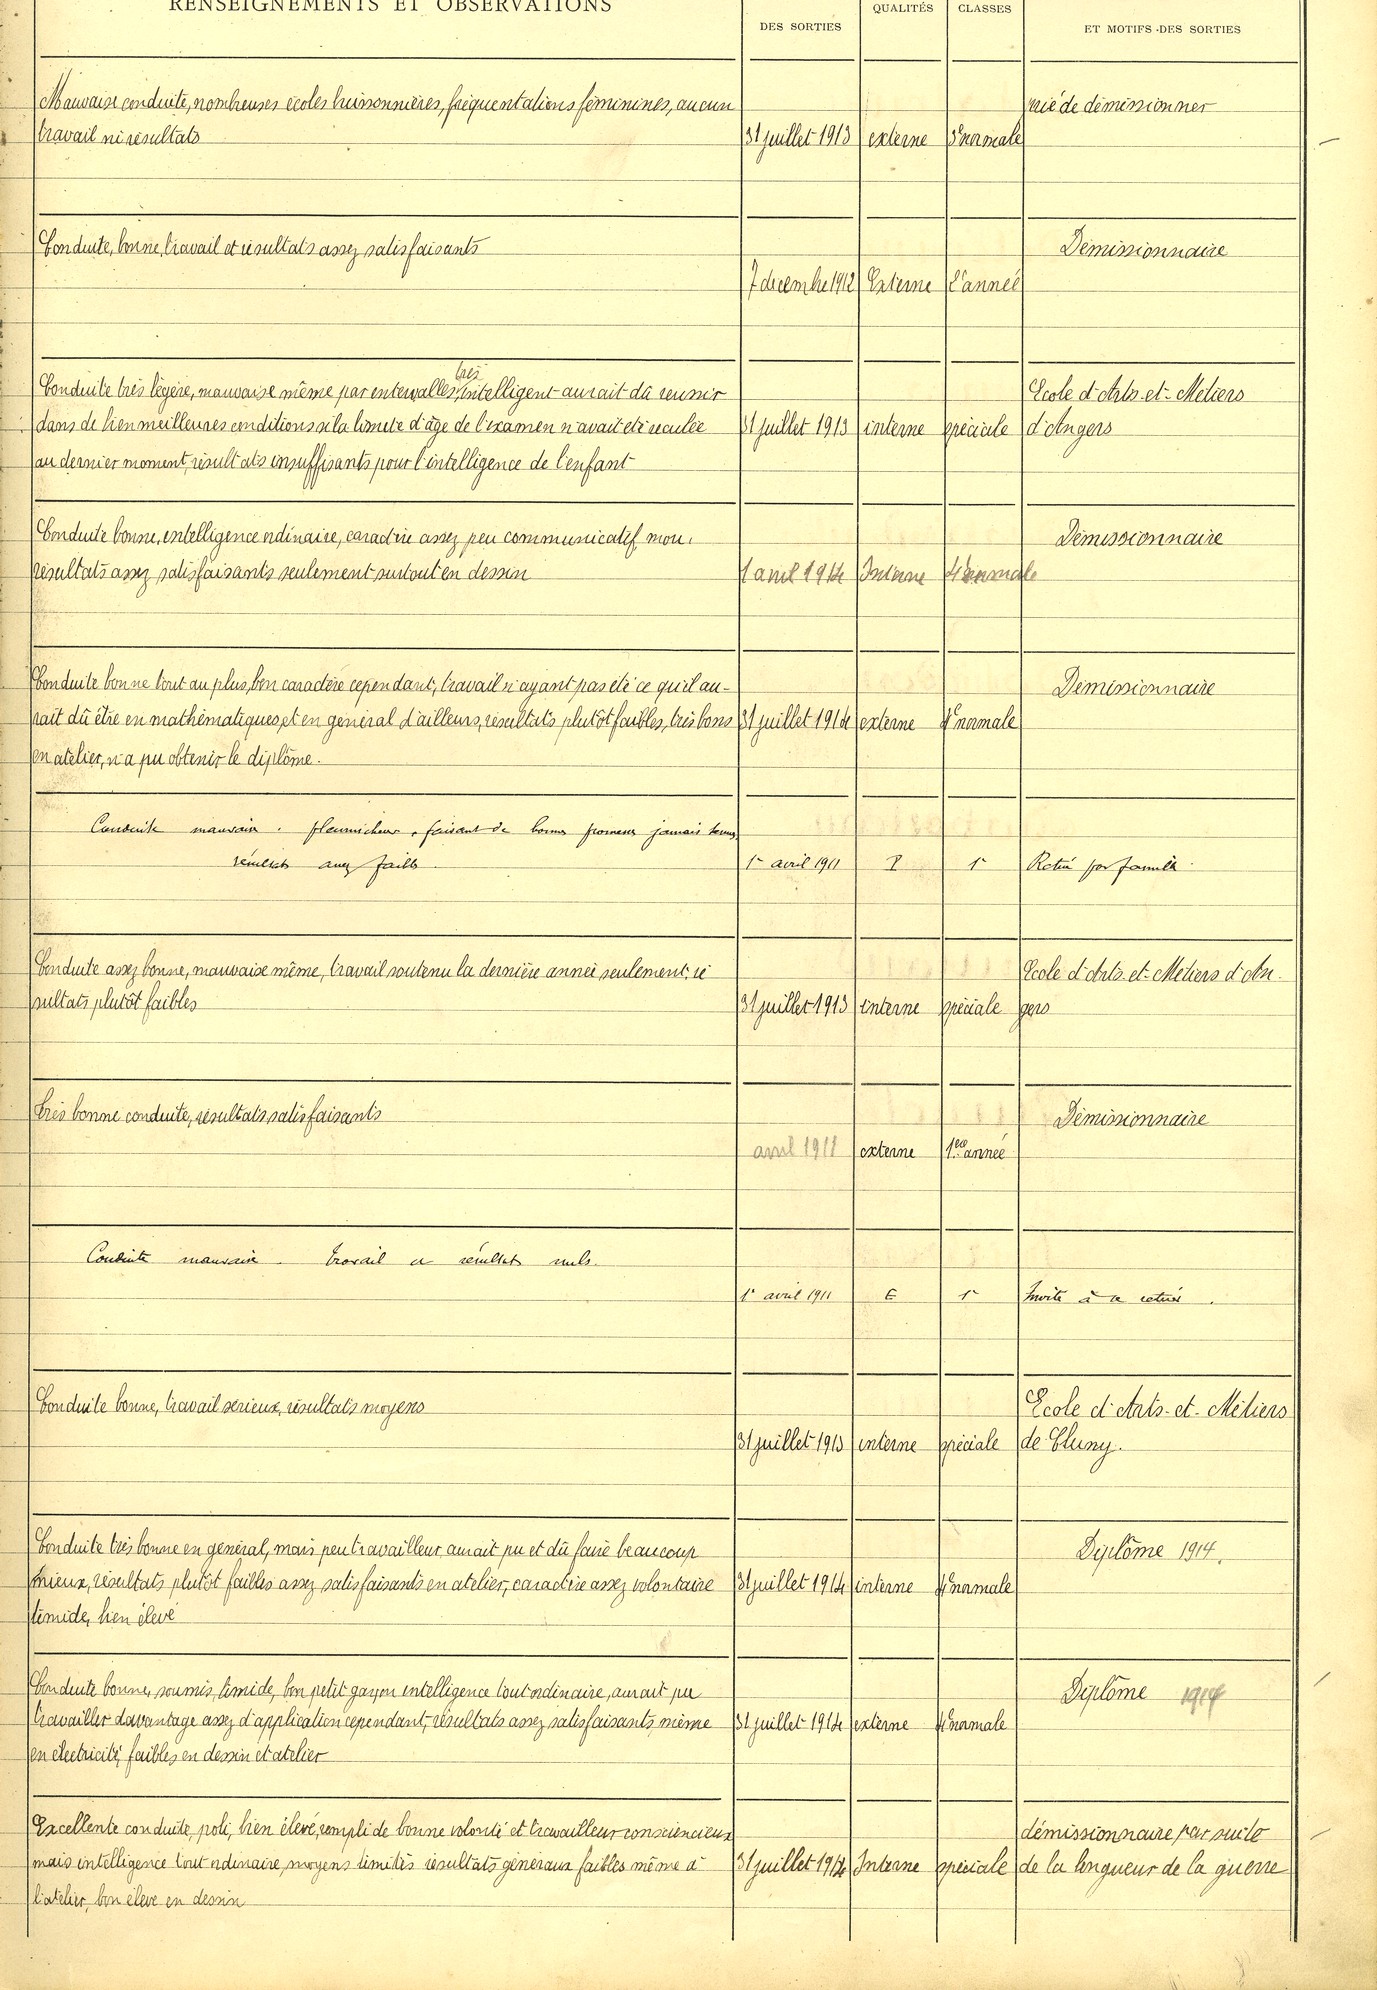 RENSEIGNEMENTS ET OBSERVATIONS
DES SORTIES
QUALITÉS
CLASSES
ET MOTIFS DES SORTIES
Mauvaise conduite, nombreuses écoles buissonnières, fréquentations féminines, aucun
travail ni résultats
31 juillet 1913
externe
3e normale
prié de démissionner
Conduite, bonne, travail et résultats assez satisfaisants
7 décembre 1912
Externe
2e année
Démissionnaire
Conduite très légère, mauvaise même par intervalles, très intelligent aurait dû réussir
dans de bien meilleures conditions si la limite d'âge de l'examen n'avait été reculée
au dernier moment, résultats insuffisants pour l'intelligence de l'enfant
31 juillet 1913
interne
spéciale
Ecole d'Arts-et-Métiers
d'Angers
Conduite bonne, intelligence ordinaire, caractère assez peu communicatif, mou,
résultats assez satisfaisants seulement surtout en dessin
1 avril 1914
Interne
4e normale
Démissionnaire
Conduite bonne tout au plus, bon caractère cependant, travail n'ayant pas été ce qu'il au-
rait dû être en mathématiques, et en général d'ailleurs, résultats plutôt faibles, très bons
en atelier, n'a pu obtenir le diplôme.
31 juillet 1914
externe
4e normale
Démissionnaire
Conduite mauvaise. pleurnicheur, faisant de bonnes promesses jamais tenues,
résultats assez faibles
1er avril 1911
P
1e
Retiré par famille
Conduite assez bonne, mauvaise même, travail soutenu la dernière année seulement, ré
sultats plutôt faibles
31 juillet 1913
interne
spéciale
Ecole d'Arts-et-Métiers d'An-
gers
Très bonne conduite, résultats satisfaisants
avril 1911
externe
1ère année
Démissionnaire
Conduite mauvaise. Travail et résultats nuls.
1er avril 1911
E
1e
Invité à se retirer.
Conduite bonne, travail sérieux, résultats moyens
31 juillet 1913
interne
spéciale
Ecole d'Arts-et-Métiers
de Cluny.
Conduite très bonne en général, mais peu travailleur, aurait pu et dû faire beaucoup
mieux, résultats plutôt faibles assez satisfaisants en atelier, caractère assez volontaire
timide, bien élevé
31 juillet 1914
interne
4e normale
Diplôme 1914.
Conduite bonne, soumis, timide, bon petit garçon intelligence tout ordinaire, aurait pu
travailler davantage assez d'application cependant, résultats assez satisfaisants, même
en électricité, faibles en dessin et atelier
31 juillet 1914
externe
4e normale
Diplôme 1914
Excellente conduite, poli, bien élevé, rempli de bonne volonté et travailleur consciencieux
mais intelligence tout ordinaire, moyens limités résultats généraux faibles même à
l'atelier, bon élève en dessin
31 juillet 1914
Interne
spéciale
démissionnaire par suite
de la longueur de la guerre